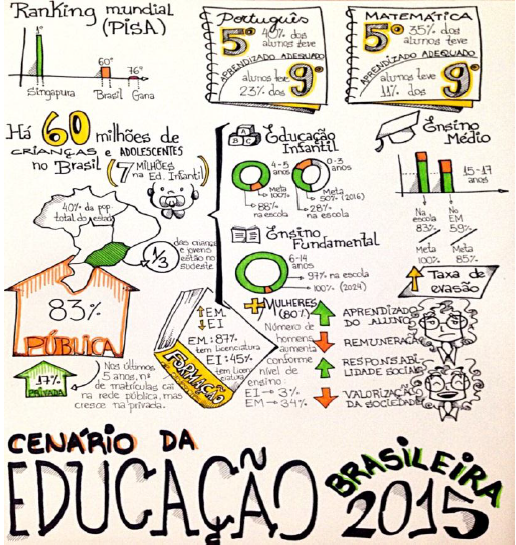 Ranking mundial
(PISA)
1º
60º
76º
Singapura
Brasil
Gana
Português
5º 40% dos
alunos teve
APRENDIZADO ADEQUADO
alunos teve
23% dos 9º
MATEMÁTICA
5º 35% dos
alunos teve
APRENDIZADO ADEQUADO
alunos teve
11% dos 9º
Há 60 milhões de
CRIANÇAS e ADOLESCENTES
no Brasil (7 MILHÕES
na Ed. Infantil)
40% da pop.
total do
1/3
das crianças
e jovens
estão no
sudeste
83%
PÚBLICA
17%
PRIVADA
Nos últimos
5 anos, nº
de matrículas cai
na rede pública, mas
cresce na privada.
Educação
Infantil
4-5
anos
Meta
100%
88%
na escola
0-3
anos
Meta
50% (2016)
28%
na escola
Ensino
Fundamental
6-14
anos
97% na escola
100% (2024)
Ensino
Médio
15-17
anos
Na
escola
83%
Meta
100%
No
EM
59%
Meta
85%
Taxa de
evasão
EM
EI
EM: 87%
tem Licenciatura
EI: 45%
tem Licen
ciatura
FORMAÇÃO
+MULHERES
(80%)
Número de
homens
aumenta
conforme
nível de
ensino:
EI → 3%
EM → 34%
APRENDIZADO
DO ALUNO
REMUNERAÇÃO
RESPONSABI
LIDADE SOCIAL
VALORIZAÇÃO
DA SOCIEDADE
CENÁRIO DA
EDUCAÇÃO
BRASILEIRA
2015